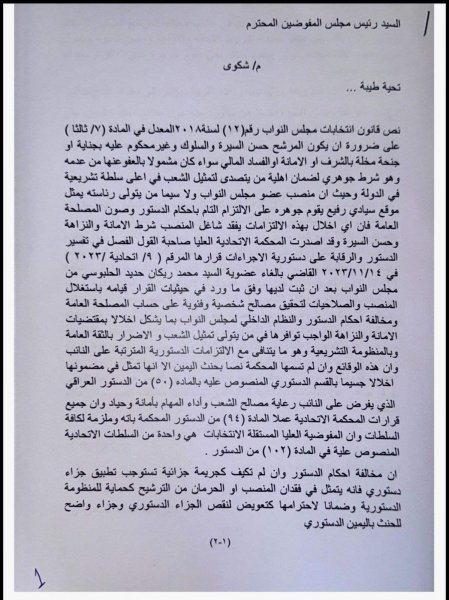 السيد رئيس مجلس المفوضين المحترم
م/ شكوى
تحية طيبة ...
نص قانون انتخابات مجلس النواب رقم(١٢) لسنة٢٠١٨المعدل في المادة (٧/ ثالثا )
على ضرورة ان يكون المرشح حسن السيرة والسلوك وغيرمحكوم عليه بجناية او
جنحة مخلة بالشرف او الامانة اوالفساد المالي سواء كان مشمولا بالعفوعنها من عدمه
وهو شرط جوهري لضمان اهلية من يتصدى لتمثيل الشعب في اعلى سلطة تشريعية
في الدولة وحيث ان منصب عضو مجلس النواب ولا سيما من يتولى رئاسته يمثل
موقع سيادي رفيع يقوم جوهره على الالتزام التام باحكام الدستور وصون المصلحة
العامة فان اي اخلال بهذه الالتزامات يفقد شاغل المنصب شرط الامانة والنزاهة
وحسن السيرة وقد اصدرت المحكمة الاتحادية العليا صاحبة القول الفصل في تفسير
الدستور والرقابة على دستورية الاجراءات قرارها المرقم ( ٩/ اتحادية /٢٠٢٣ )
في ٢٠٢٣/١١/١٤ القاضي بالغاء عضوية السيد محمد ريكان حديد الحلبوسي من
مجلس النواب بعد ان ثبت لديها وفق ما ورد في حيثيات القرار قيامه باستغلال
المنصب والصلاحيات لتحقيق مصالح شخصية وفئوية على حساب المصلحة العامة
ومخالفة احكام الدستور والنظام الداخلي لمجلس النواب بما يشكل اخلالا بمقتضيات
الامانة والنزاهة الواجب توافرها في من يتولى تمثيل الشعب و الاضرار بالثقة العامة
وبالمنظومة التشريعية وهو ما يتنافى مع الالتزامات الدستورية المترتبة على النائب
وان هذه الوقائع وان لم تسمها المحكمة نصا بحنث اليمين الا انها تمثل في مضمونها
اخلالا جسيما بالقسم الدستوري المنصوص عليه بالماده (٥٠) من الدستور العراقي
الذي يفرض على النائب رعاية مصالح الشعب وأداء المهام بأمانة وحياد وان جميع
قرارات المحكمة الاتحادية عملا المادة (٩٤) من الدستور المحكمة باته وملزمة لكافة
السلطات وان المفوضية العليا المستقلة الانتخابات هي واحدة من السلطات الاتحادية
المنصوص علية في المادة (١٠٢) من الدستور .
ان مخالفة احكام الدستور وان لم تكيف كجريمة جزائية تستوجب تطبيق جزاء
دستوري فانه يتمثل في فقدان المنصب او الحرمان من الترشيح كحماية للمنظومة
الدستورية وضمانا لاحترامها كتعويض لنقص الجزاء الدستوري وجزاء واضح
للحنث باليمين الدستوري
(١-٢)
1